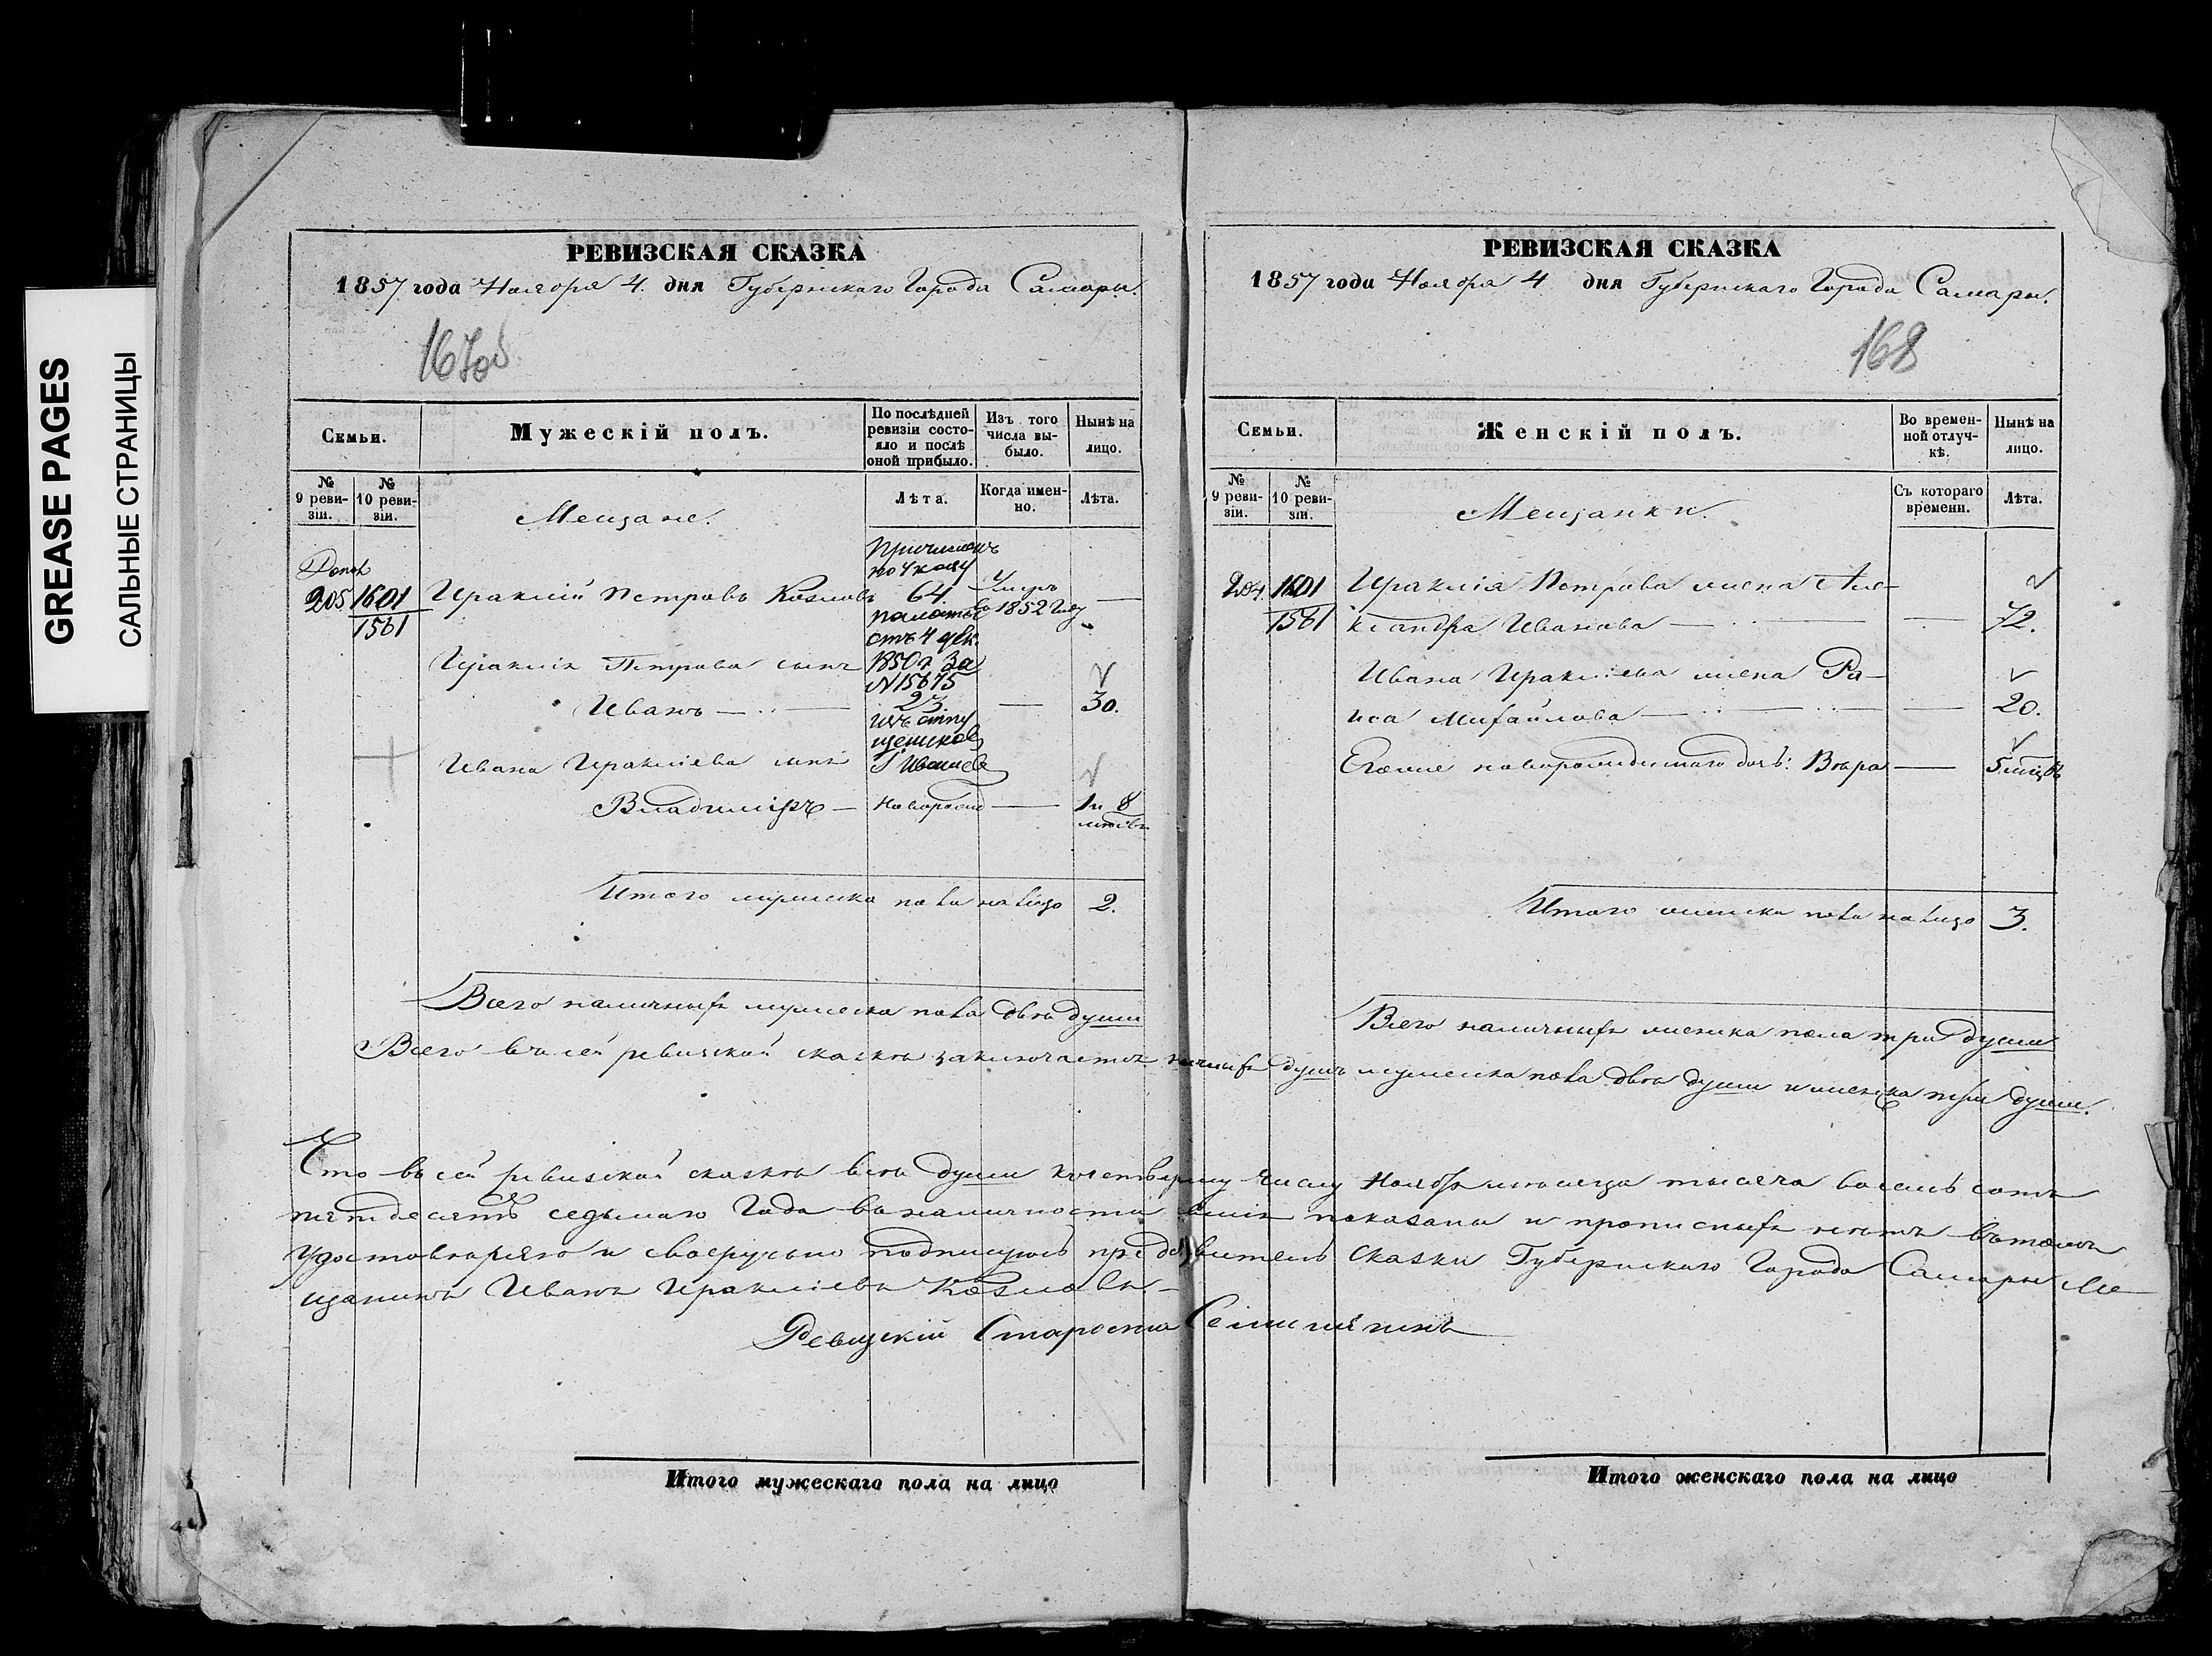 GREASE PAGES
САЛЬНЫЕ СТРАНИЦЫ
РЕВИЗСКАЯ СКАЗКА
1857 года Ноября 4. дня Губернскаго Города Самары.
167об
Семьи.
Мужескій полъ.
По послѣдней ревизіи состо-
яло и послѣ
оной прибыло.
Изъ того
числа вы-
было.
Нынѣ на
лицо.
№
9 реви-
зіи.
№
10 реви-
зіи.
Мещане.
Лѣта.
Когда имен-
но.
Лѣта.
Допол
205 1601
1561
Ираклій Петровъ Козловъ
Причисленъ
по указу
64
палаты
отъ 4 дек.
1850 г. За
№ 15675
Умеръ
въ 1852 году
—
Ираклія Петрова сынъ
Иванъ —
23.
изъ отпу
щенниковъ
Г. Ивашева
—
30.
Ивана Ираклiева сынъ
Владимiръ —
новорожд
—
1 и 8
мѣсявъ
Итого мужеска пола на лицо 2.
Всего наличныхъ мужеска пола двѣ души
Всего въ сей ревизской сказкѣ заключается
РЕВИЗСКАЯ СКАЗКА
1857 года Ноября 4 дня Губернскаго Города Самары.
168
Семьи.
Женскій полъ.
Во времен-
ной отлуч-
кѣ.
Нынѣ на
лицо.
№
9 реви-
зіи.
№
10 реви-
зіи.
Мещанки.
Съ котораго
времени.
Лѣта.
204. 1601
1561
Ираклія Петрова жена Але-
ксандра Иванова — — 72.
Ивана Ираклiева жена Ра-
иса Михайлова — — 20.
Егоже новорожденнаго дочь: Вѣра — 5 мѣцвъ
Итого женска пола на лицо 3.
Всего наличныхъ женска пола три души
душъ мужеска пола двѣ души и женска три души.
Что въ сей ревизской сказкѣ всѣ души къ четвертому числу Ноября мѣсяца тысяча восемь сотъ
пятдесятъ седьмаго Года въ наличности показаны и прописныхъ нѣтъ въ томъ
удостовѣряю и своеручно подписуюсь предъявитель Сказки Губернскаго Города Самары Ме-
щанинъ Иванъ Иракліевъ Козловъ —
Ревизскій Староста
Итого мужескаго пола на лицо
Итого женскаго пола на лицо